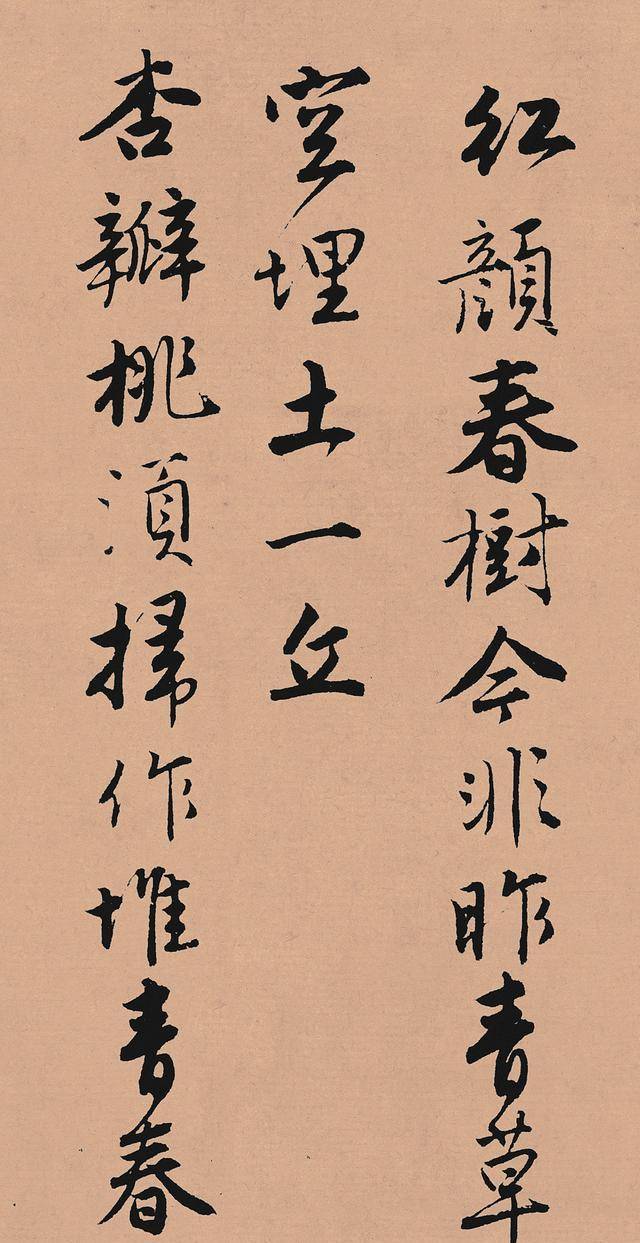 红颜春樹今非昨青草
空埋土一丘
杏瓣桃须掃作堆青春